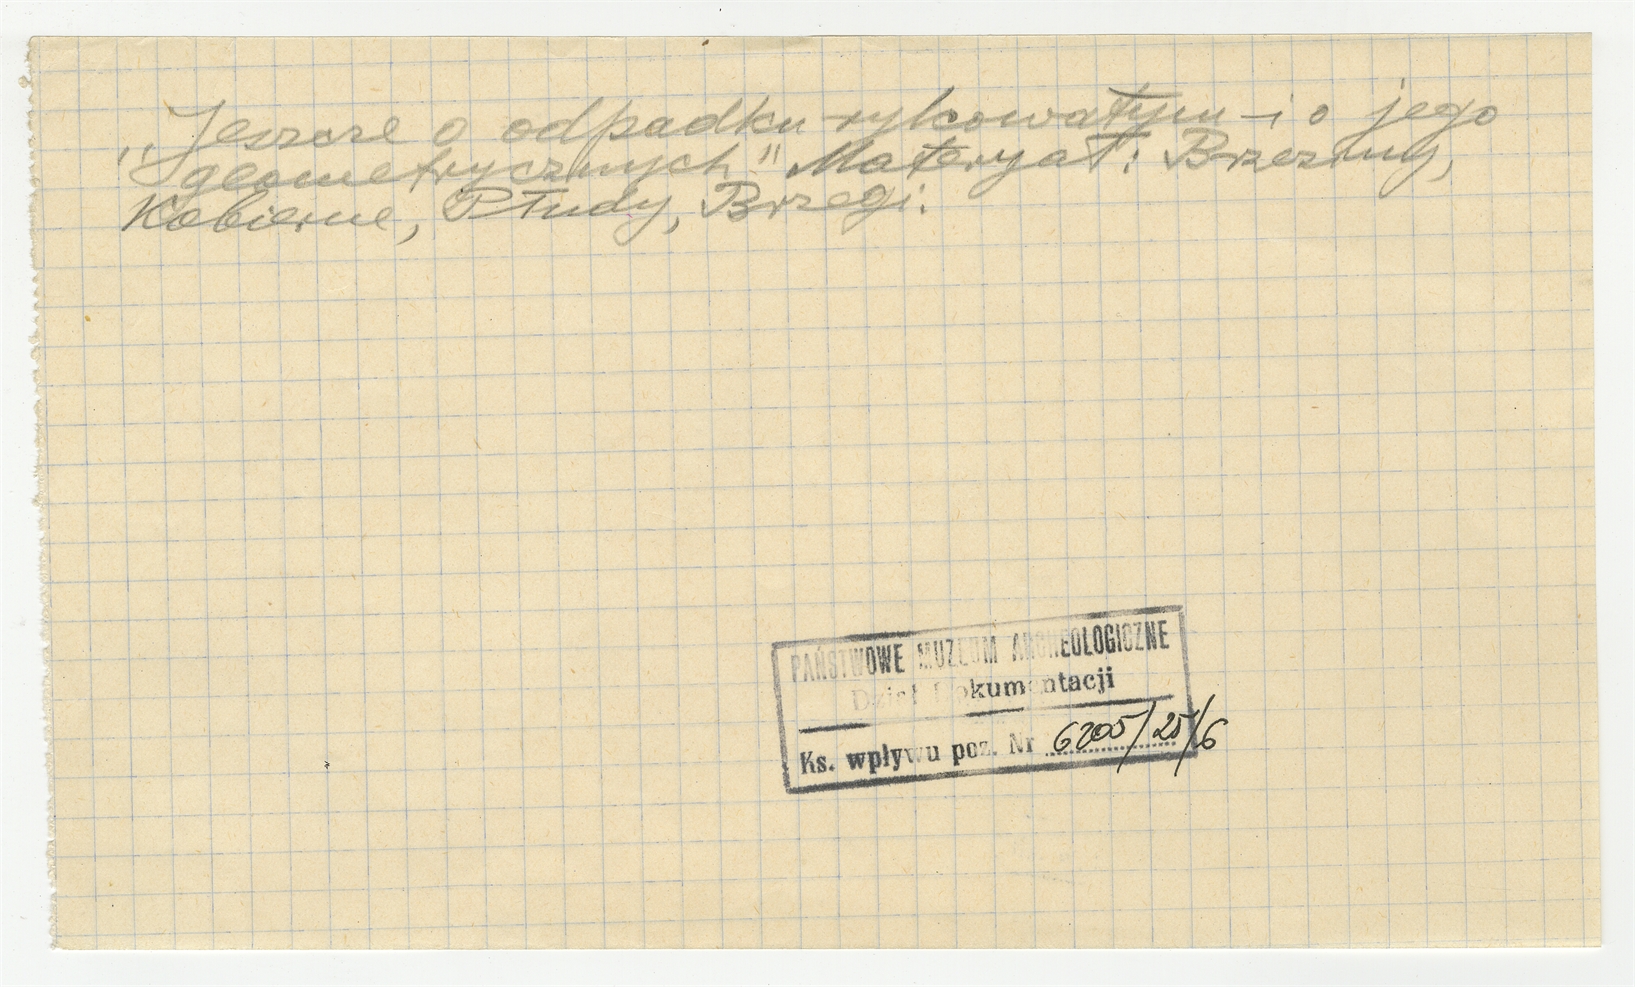 „Jeszcze o odpadku rylcowatym i o jego
geometrycznych" Materyał: Brzeziny,
Kobierne, Płudy, Brzegi.
PAŃSTWOWE MUZEUM ARCHEOLOGICZNE
Dział Dokumentacji
Ks. wpływu poz. Nr 6205/25/6